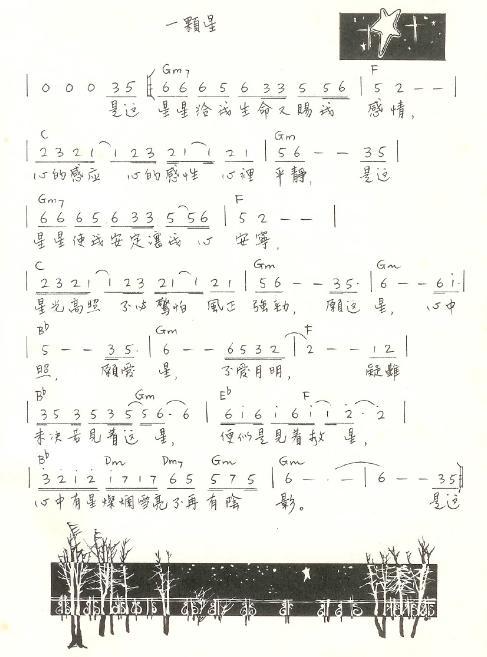 一顆星
Gm7 F
| 0 0 0 35 | 66 6 5 6 33 5 56 | 5 2 - - |
是这 星星给我生命又賜我 感情,
C Gm
2321 1 23 21 1 21 | 56 - - 35 |
心的感应 心的感性 心裡 平靜, 是这
Gm7 F
66 65 6 33 5 56 | 5 2 - - |
星星使我安定讓我 心 安寧,
C Gm Gm
2321 1 23 21 1 21 | 56 - - 35· | 6 - - 6i· |
星光高照 不怕驚怕 風正 強勁, 願这 星, 心中
Bb Gm F
5 - - 35· | 6 - - 6532 | 2 - - 12 |
照, 願愛 星, 不愛月明, 疑難
Bb Gm Eb F
35 35 35 56·6 | 6i6i 6i i2·2 |
未決若見着这 星, 便似是見着救 星,
Bb Dm Dm7 Gm Gm
32i2 i7i7 65 575 | 6 - - | 6 - - 35
心中有星燦爛雪亮不再有陰 影。 是这